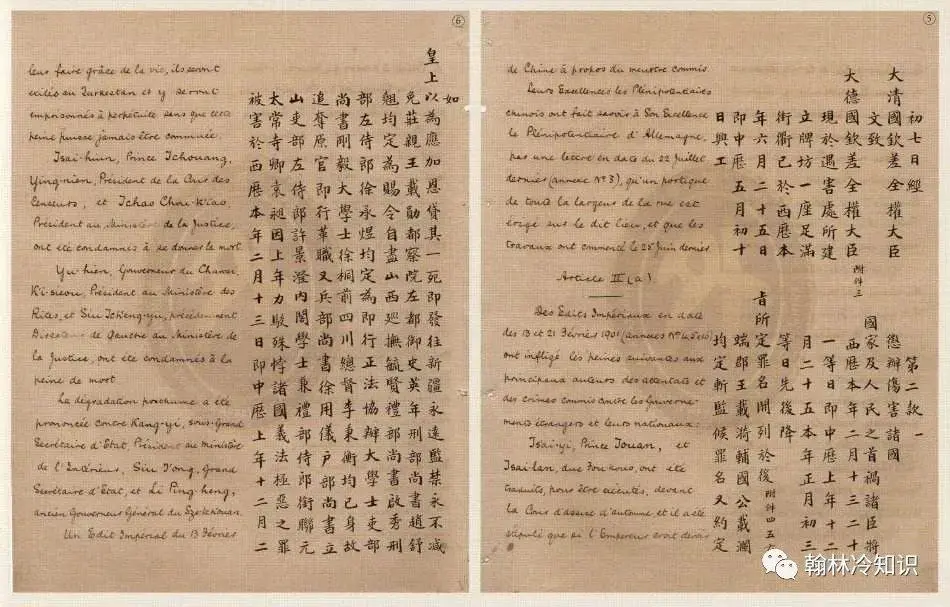 ⑤
初七日經
大清國欽差全權大臣
文致
大德國欽差全權大臣 附件三
現於遇害處所建
立牌坊一座足滿
街衢已於西歷本
年六月二十五日
即中歷五月初十
日興工
第二款一
懲辦傷害諸國
國家及人民之首禍諸臣將
西歷本年二月十三二十
一等日即中歷上年十二
月二十五本年正月初三
等日先後降
旨所定罪名開列於後 附件四五六
端郡王載漪輔國公載瀾
均定斬監候罪名又約定
de Chine à propos du meurtre commis.
Leurs Excellences les Plénipotentiaires
chinois ont fait savoir à Son Excellence
le Plénipotentiaire d'Allemagne,
par une lettre en date du 22 Juillet
dernier (annexe No 3), qu'un portique
de toute la largeur de la rue est
érigé sur le dit lieu, et que les
travaux ont commencé le 25 Juin dernier.
Article II (a)
Des Edits Impériaux en date
des 13 et 21 Février 1901 (annexes No 4, 5 et 6)
ont infligé les peines suivantes aux
principaux auteurs des attentats et
des crimes commis contre les Gouverne-
ments étrangers et leurs nationaux:
Tsai-yi, Prince Touan, et
Tsai-lan, duc Fou-kouo, ont été
traduits, pour être exécutés, devant
la Cour d'assise d'automne et il a été
stipulé que si l'Empereur croit devoir
⑥
如
皇上以為應加恩貸其一死即發往新疆永遠監禁永不減
免莊親王載勛都察院左都御史英年刑部尚書趙舒
翹均定為賜令自盡山西巡撫毓賢禮部尚書啟秀刑
部左侍郎徐承煜均定為即行正法協辦大學士吏部
尚書剛毅大學士徐桐前四川總督李秉衡均已身故
追奪原官即行革職又兵部尚書徐用儀戶部尚書立
山吏部左侍郎許景澄內閣學士兼禮部侍郎銜聯元
太常寺卿袁昶因上年力駁殊悖諸國義法極惡之罪
被害於西歷本年二月十三日即中歷上年十二月二
leur faire grâce de la vie, ils seront
exilés au Turkestan et y seront
emprisonnés à perpétuité sans que cette
peine puisse jamais être commuée.
Tsai-hiun, Prince Tchouang,
Ying-nien, Président de la Cour des
Censeurs, et Tchao Chou-k'iao,
Président au Ministère de la Justice,
ont été condamnés à se donner la mort
Yu-hien, Gouverneur du Chansi,
Ki-sieou, Président au Ministère des
Rites, et Siu Tcheng-yu, précédemment
Directeur de Gauche au Ministère de
la Justice, ont été condamnés à la
peine de mort
La dégradation posthume a été
prononcée contre Kang-yi, sous-Grand
Secrétaire d'Etat, Président au ministère
de l'Intérieur, Siu T'ong, Grand
Secrétaire d'Etat, et Li Ping-heng,
ancien Gouverneur Général du Szetchouan.
Un Edit Impérial du 13 Février
翰林冷知识